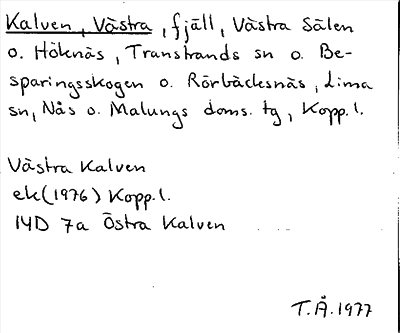 Kalven, Västra, fjäll, Västra Sälen
o. Höknäs, Transtrands sn o. Be-
sparingsskogen o. Rörbäcksnäs, Lima
sn, Nås o. Malungs doms. tg, Kopp.l.
Västra Kalven
ek(1976) Kopp.l.
14D 7a Östra Kalven
T.Å.1977